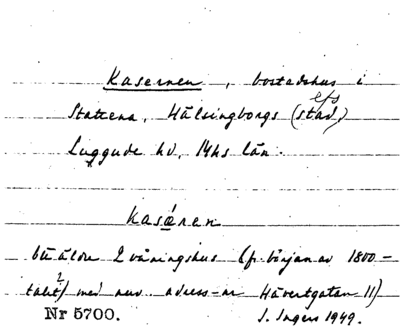 Kasernen, bostadshus i
Stattena, Hälsingborgs (stad) efs
Luggude hd, Mhs län.
kasǽrən
ett äldre 2 våningshus (fr. början av 1800-
talet?) med nuv. adress-nr Hävertgatan 11)
Nr 5700.
I. Ingers 1949.